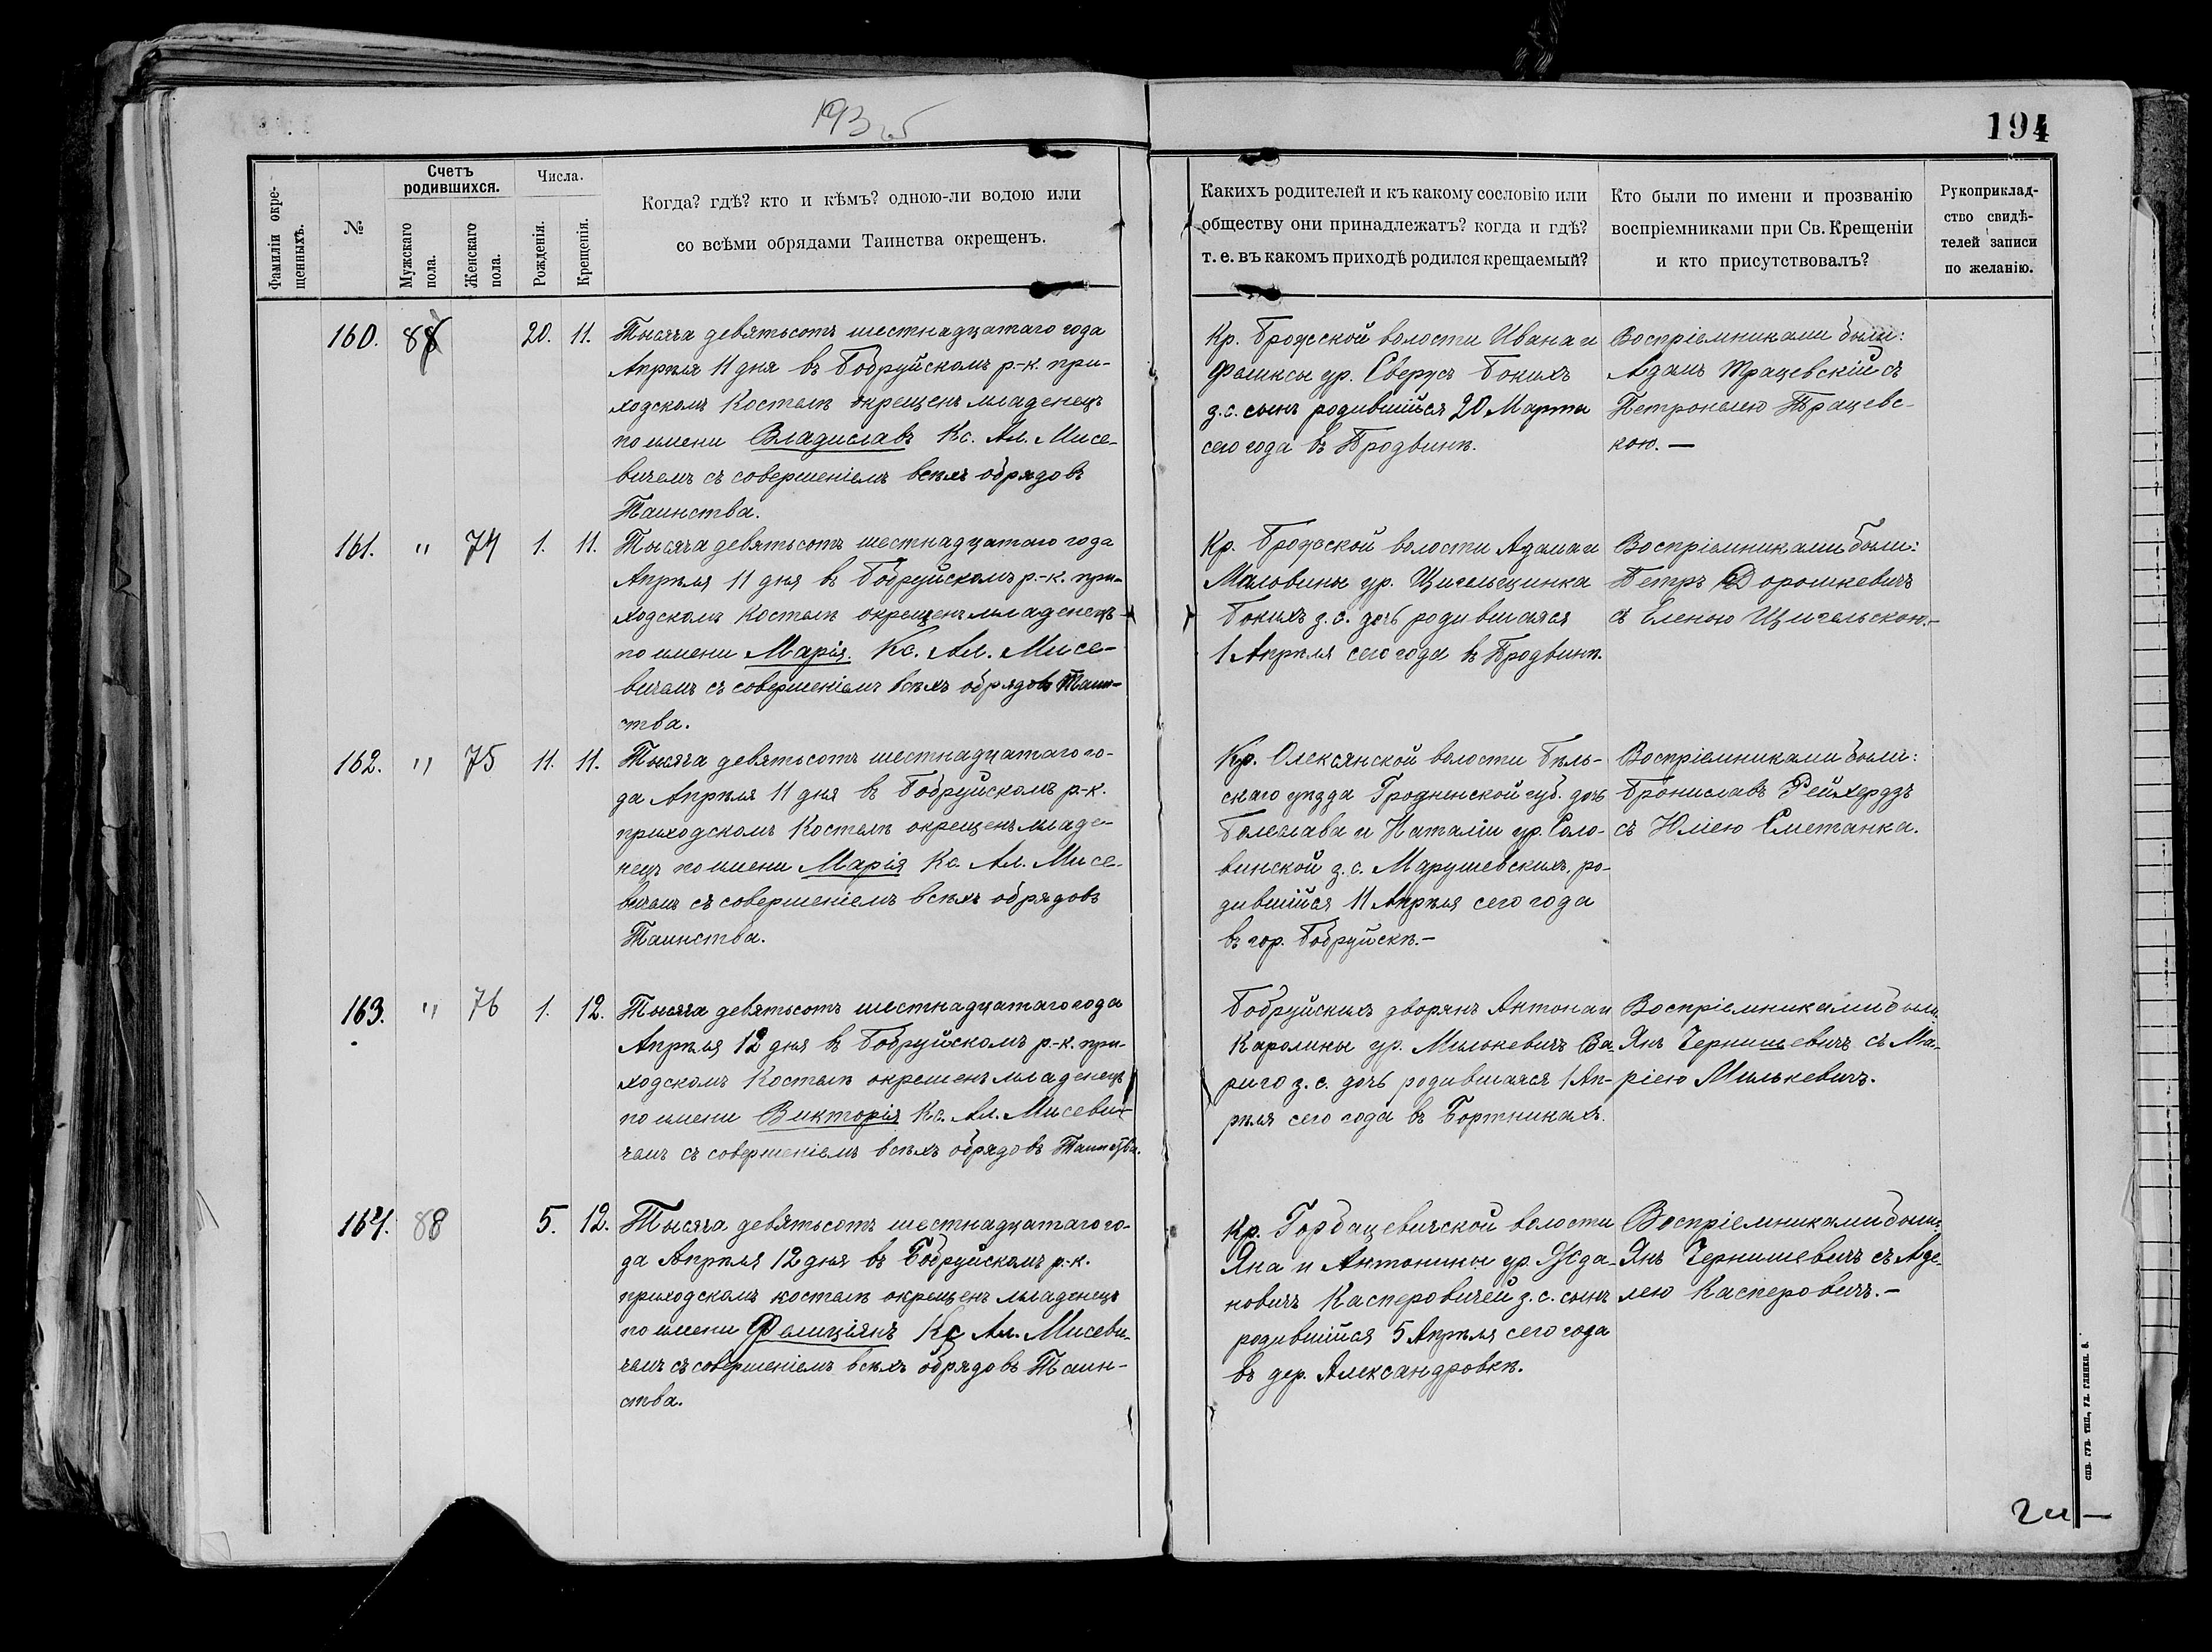 193
194
Фамиліи окре-
щенныхъ.
№
Счетъ
родившихся.
Мужскаго
пола.
Женскаго
пола.
Числа.
Рожденія.
Крещенія.
Когда? гдѣ? кто и кѣмъ? одною-ли водою или
со всѣми обрядами Таинства окрещенъ.
Какихъ родителей и къ какому сословію или
обществу они принадлежатъ? когда и гдѣ?
т. е. въ какомъ приходѣ родился крещаемый?
Кто были по имени и прозванію
воспріемниками при Св. Крещеніи
и кто присутствовалъ?
Рукоприклад-
ство свидѣ-
телей записи
по желанію.
160. 20. 11.
Тысяча девятьсотъ шестнадцатаго года
Апрѣля 11 дня въ Бобруйскомъ р.-к. при-
ходскомъ Костелѣ окрещенъ младенецъ
по имени Владиславъ Кс. Ал. Мисе-
вичемъ съ совершеніемъ всѣхъ обрядовъ
Таинства.
Кр. Брожской волости Ивана и
ур. Сверусъ Бокихъ
з. с. сынъ родившійся 20 Марта
сего года въ Продвинѣ.
Воспріемниками были:
Адамъ Трацевскій съ
Петронелею Трацевс-
кою. —
161. " 74 1. 11.
Тысяча девятьсотъ шестнадцатаго года
Апрѣля 11 дня въ Бобруйскомъ р.-к. при-
ходскомъ Костелѣ окрещенъ младенецъ
по имени Марія. Кс. Ал. Мисе-
вичемъ съ совершеніемъ всѣхъ обрядовъ Таин-
ства.
Кр. Брожской волости Адама и
Мальвины ур.
Бокихъ з. с. дочь родившаяся
1 Апрѣля сего года въ Продвинѣ.
Воспріемниками были:
Петръ Дорошкевичъ
съ Еленою
162. " 75 11. 11.
Тысяча девятьсотъ шестнадцатаго го-
да Апрѣля 11 дня въ Бобруйскомъ р.-к.
приходскомъ Костелѣ окрещенъ младе-
нецъ по имени Марія Кс. Ал. Мисе-
вичемъ съ совершеніемъ всѣхъ обрядовъ
Таинства.
Кр. Олексянской волости Бѣль-
скаго уѣзда Гродненской губ. дочь
Болеслава и Наталіи ур. Соло-
винской з. с. Марушевскихъ, ро-
дившійся 11 Апрѣля сего года
въ гор. Бобруйскѣ. —
Воспріемниками были:
Брониславъ Рейхердзъ
съ Юліею Сметанка.
163. " 76 1. 12.
Тысяча девятьсотъ шестнадцатаго года
Апрѣля 12 дня въ Бобруйскомъ р.-к. при-
ходскомъ Костелѣ окрещенъ младенецъ
по имени Викторія Кс. Ал. Мисеви-
чемъ съ совершеніемъ всѣхъ обрядовъ Таинства.
Бобруйскихъ дворянъ Антона и
Каролины ур. Милькевичъ Ва-
риго з. с. дочь родившаяся 1 Ап-
рѣля сего года въ Бортникахъ.
Воспріемниками были
Янъ Чернишевичъ съ Ма-
ріею Милькевичъ.
164. 88 5. 12.
Тысяча девятьсотъ шестнадцатаго го-
да Апрѣля 12 дня въ Бобруйскомъ р.-к.
приходскомъ костелѣ окрещенъ младенецъ
по имени Фелиціянъ Кс Ал. Мисеви-
чемъ съ совершеніемъ всѣхъ обрядовъ Таин-
ства.
Кр. Горбацевичской волости
Яна и Антонины ур. Жда-
новичъ Касперовичей з. с. сынъ
родившійся 5 Апрѣля сего года
въ дер. Александровкѣ.
Воспріемниками были:
Янъ Чернишевичъ съ Аде-
лею Касперовичъ. —